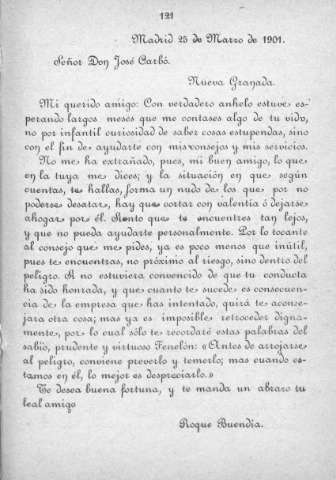 121
Madrid 25 de Marzo de 1901.
Señor Don José Carbó.
Nueva Granada.
Mi querido amigo: Con verdadero anhelo estuve es-
perando largos meses que me contases algo de tu vida,
no por infantil curiosidad de saber cosas estupendas, sino
con el fin de ayudarte con mis consejos y mis servicios.
No me ha extrañado, pues, mi buen amigo, lo que
en la tuya me dices; y la situación en que según
cuentas, te hallas, forma un nudo de los que por no
poderse desatar, hay que cortar con valentía ó dejarse
ahogar por él. Siento que te encuentres tan lejos,
y que no pueda ayudarte personalmente. Por lo tocante
al consejo que me pides, ya es poco menos que inútil,
pues te encuentras, no próximo al riesgo, sino dentro del
peligro. A no estuviera convencido de que tu conducta
ha sido honrada, y que cuanto te sucede es consecuen-
cia de la empresa que has intentado, quizá te aconse-
jara otra cosa; mas ya es imposible retroceder digna-
mente, por lo cual sólo te recordaré estas palabras del
sabio, prudente y virtuoso Fenelón: «Antes de arrojarse
al peligro, conviene preverlo y temerlo; mas cuando es-
tamos en él, lo mejor es despreciarlo.»
Te desea buena fortuna, y te manda un abrazo tu
leal amigo
Roque Buendía.